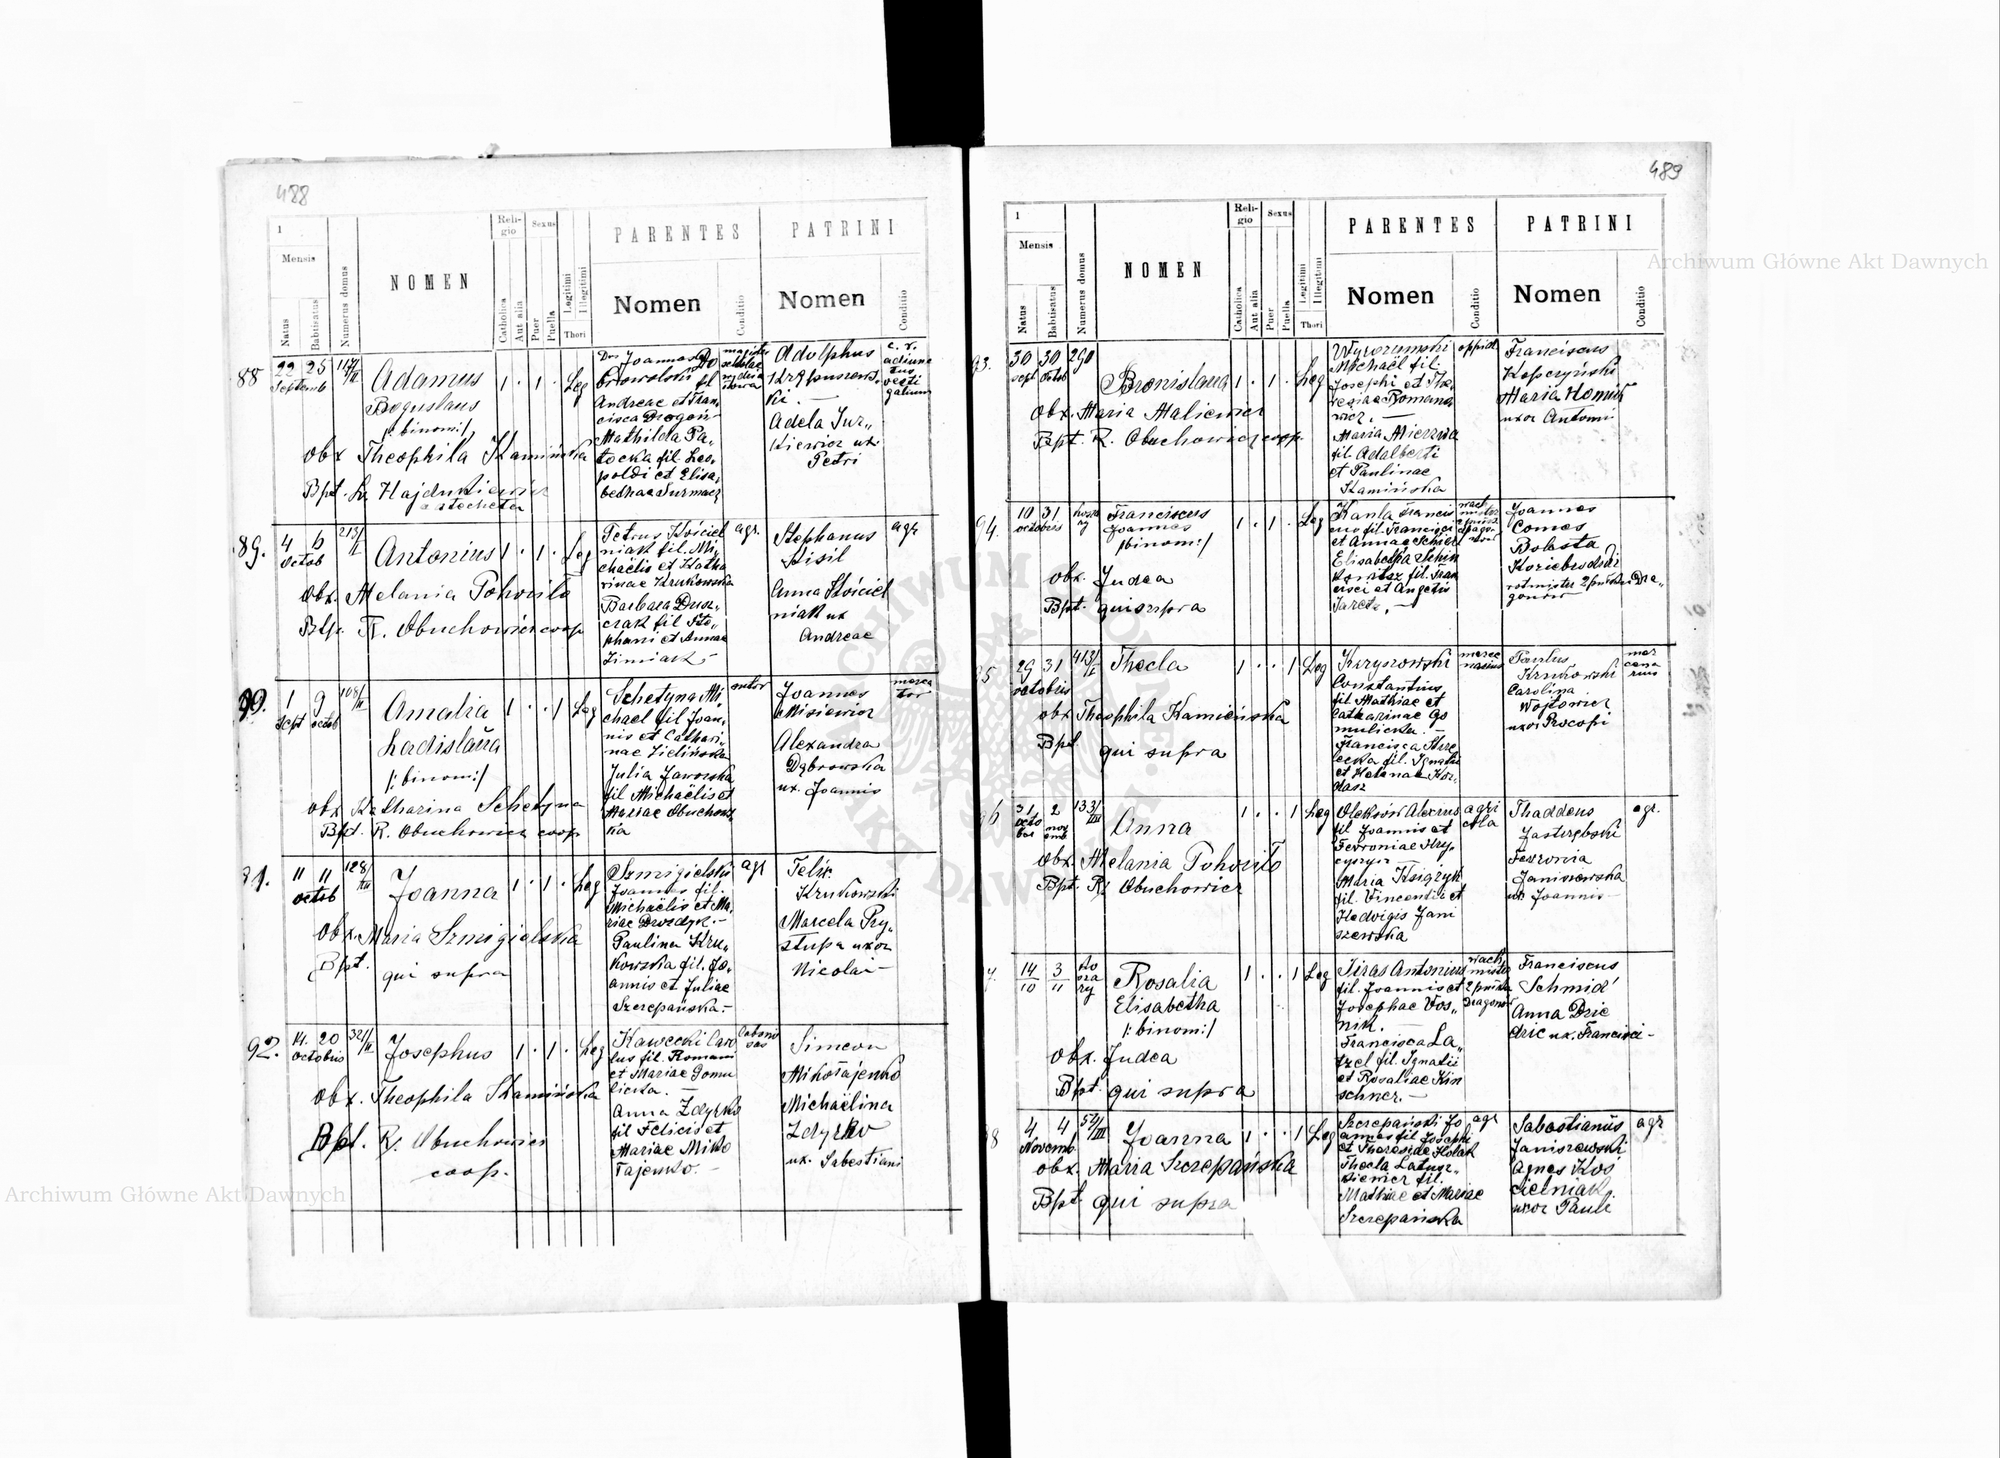 488
1
Mensis
Natus
Babtisatus
Numerus domus
NOMEN
Religio
Catholica
Aut alia
Sexus
Puer
Puella
Legitimi
Illegitimi
Thori
PARENTES
Nomen
Conditio
PATRINI
Nomen
Conditio
88
22 25
Septemb
Adamus
Boguslaus
/:binom:/
obx Theophila Kamińska
Bpt. Hajdukiewicz
catecheta
1 . 1 . Leg
Andreae et Fran
cisca
Mathilda Pa„
tocka fil. Leo„
poldi et Elisa„
bethae Surmacz
Adolphus
Adela Jur„
kiewicz ux
Petri
89.
4 6
octob
Antonius
obx. Melania Pohoriło
Btp. R. Obuchowicz coop
1 . 1 . Leg
Petrus Kościel
niak fil. Mi„
chaëlis et Katha
rinae Krukowska
Barbara Dusz„
czak fil Ste„
phani et Annae
Zimiak –
agr.
Stephanus
Kisil
Anna Kościel
niak ux
Andreae
agr
90.
1 9
Sept octob
108/II
Amalia
Ladislaŭa
/:binom:/
obx Katharina Schetyna
Bpt. R. Obuchowicz coop
1 . . 1 Leg
Schetyna Mi„
chael fil Joan„
nis et Cathari„
nae Zielińska
Julia Jaworska
fil Michaëlis et
Mariae Obuchow„
ka
sutor
Joannes
Misiewicz
Alexandra
Dąbrowska
ux. Joannis
merca
tor
91.
11 11
octob
128/III
Joanna
obx. Maria Szmigielska
Bpt. qui supra
1 . 1 . Leg
Szmigielski
Joannes fil.
Michaëlis et Ma„
riae Drozdyk. –
Paulina Kru„
kowska fil. Jo„
annis et Juliae
Szczepańska. –
agr
Felix
Krukowski
Marcela Pry„
stupa uxor
Nicolai –
92.
14. 20
octobris
32/II
Josephus
obx. Theophila Kamińska
Bpt. R. Obuchowicz
coop.
1 . 1 . Leg
Kawecki Caro
lus fil. Romani
et Mariae Gomu
licka. –
Anna Zdyrko
fil Felicis et
Mariae Miko
łajenko. –
Simeon
Mikołajenko
Michaëlina
Zdyrko
ux. Sabestiani
489
1
Mensis
Natus
Babtisatus
Numerus domus
NOMEN
Religio
Catholica
Aut alia
Sexus
Puer
Puella
Legitimi
Illegitimi
Thori
PARENTES
Nomen
Conditio
PATRINI
Nomen
Conditio
93.
30 30
sept octob
290
Bronislaus
obx. Maria Maliewicz
Bpt. R. Obuchowicz coop.
1 . 1 . Leg
Michaël fil.
Josephi et The„
Maria Mierzwa
fil. Adalberti
et Paulinae
Kamińska
oppid
Franciscus
Kopczyński
Maria Homik
uxor Antonii
94.
10 31
octobris
Franciscus
Joannes
/binom:/
obx. Judea
Bpt. qui supra
1 . 1 . Leg
Kanta Francis
cus fil. Francisci
et Annae
Elisabetha
fil. Fran
cisci et Angelis
Joannes
Comes
Bobesta
Koziebrodzki
rotmister 2 pułku Dra„
gonów
95
29 31
octobris
413/II
Thecla
obx Theophila Kamieńska
Bpt qui supra
1 . . 1 Leg
Krzyszowski
Constantius
fil. Mathiae et
Catharinae Go
mulicka. –
Francisca Strze
lecka fil. Ignatii
et Helenae Kor„
dasz
merce
narius
Paulus
Krukowski
Carolina
Wojtowicz
uxor Procopi
mer
cena
rius
96
31 2
octo
bris
nov
emb
133/III
Anna
obx. Melania Pohoriło
Bpt. R. Obuchowicz
1 . . 1 Leg
Oleksów Alexius
fil Joannis et
Fevroniae Kry„
Maria Księżyk
fil. Vincentii et
Hedvigis Jani
szewska
agri
cola
Thaddeus
Jastrzębski
Fevronia
Janiszewska
ux Joannis –
agr.
97.
14/10 3/11
Rosalia
Elisabetha
/:binom:/
obx. Judea
Bpt qui supra
1 . . 1 Leg
Jiras Antonius
fil. Joannis et
Josephae Vos„
nik. –
Francisca La„
tzel fil. Ignatii
et Rosaliae Kin
schner. –
wach
mister
2 pułku
Dragonów
Franciscus
Schmid
Anna Drie
dric ux. Francisci –
98
4 4
Novemb
52/III
Joanna
obx. Maria Szczepańska
Bpt. qui supra
1 . . 1 Leg
Szczepański Jo
annes fil Josephi
et Theresiae Kolak
Thecla Latusz„
kiewicz fil.
Mathiae et Mariae
Szczepańska
agr
Sabastianus
Janiszewski
Agnes Koś
cielniak
uxor Pauli
agr
Archiwum Główne Akt Dawnych
Archiwum Główne Akt Dawnych
ARCHIWUM GŁÓWNE AKT DAWNYCH